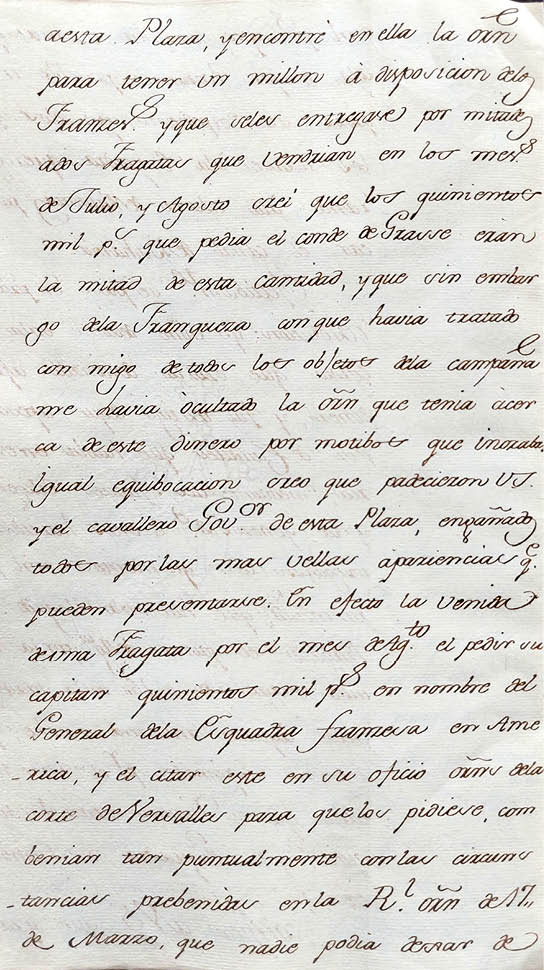 aesta Plaza, y encontré en ella la orñ
para tener un millon á disposicion delos
Franzes.s y que seles entregase por mitades
ados Fragatas que vendrian en los mes.s
de Julio, y Agosto crei que los quinientos
mil p.s que pedia el conde de Grasse eran
la mitad de esta cantidad, y que sin embar
go dela Franqueza con que havia tratado
con migo de todos los objetos dela campaña
me havia òcultado la orñ que tenia àcer
ca de este dinero por motibos que inoraba.
Igual equibocacion creo que padecieron VS.
y el cavallero Gov.or de esta Plaza, engañados
todos por las mas vellas apariencias q.e
pueden presentarse. En efecto la venida
de una Fragata por el mes de Ag.to el pedir su
capitan quinientos mil p.s en nombre del
General dela Esquadra franzesa en Ame
-rica, y el citar este en su oficio orñs dela
corte de Versalles para que los pidiese, com
benian tan puntualmente con las circuns
-tancias prebenidas en la R.l orñ de 17,,
de Marzo, que nadie podia dexar de